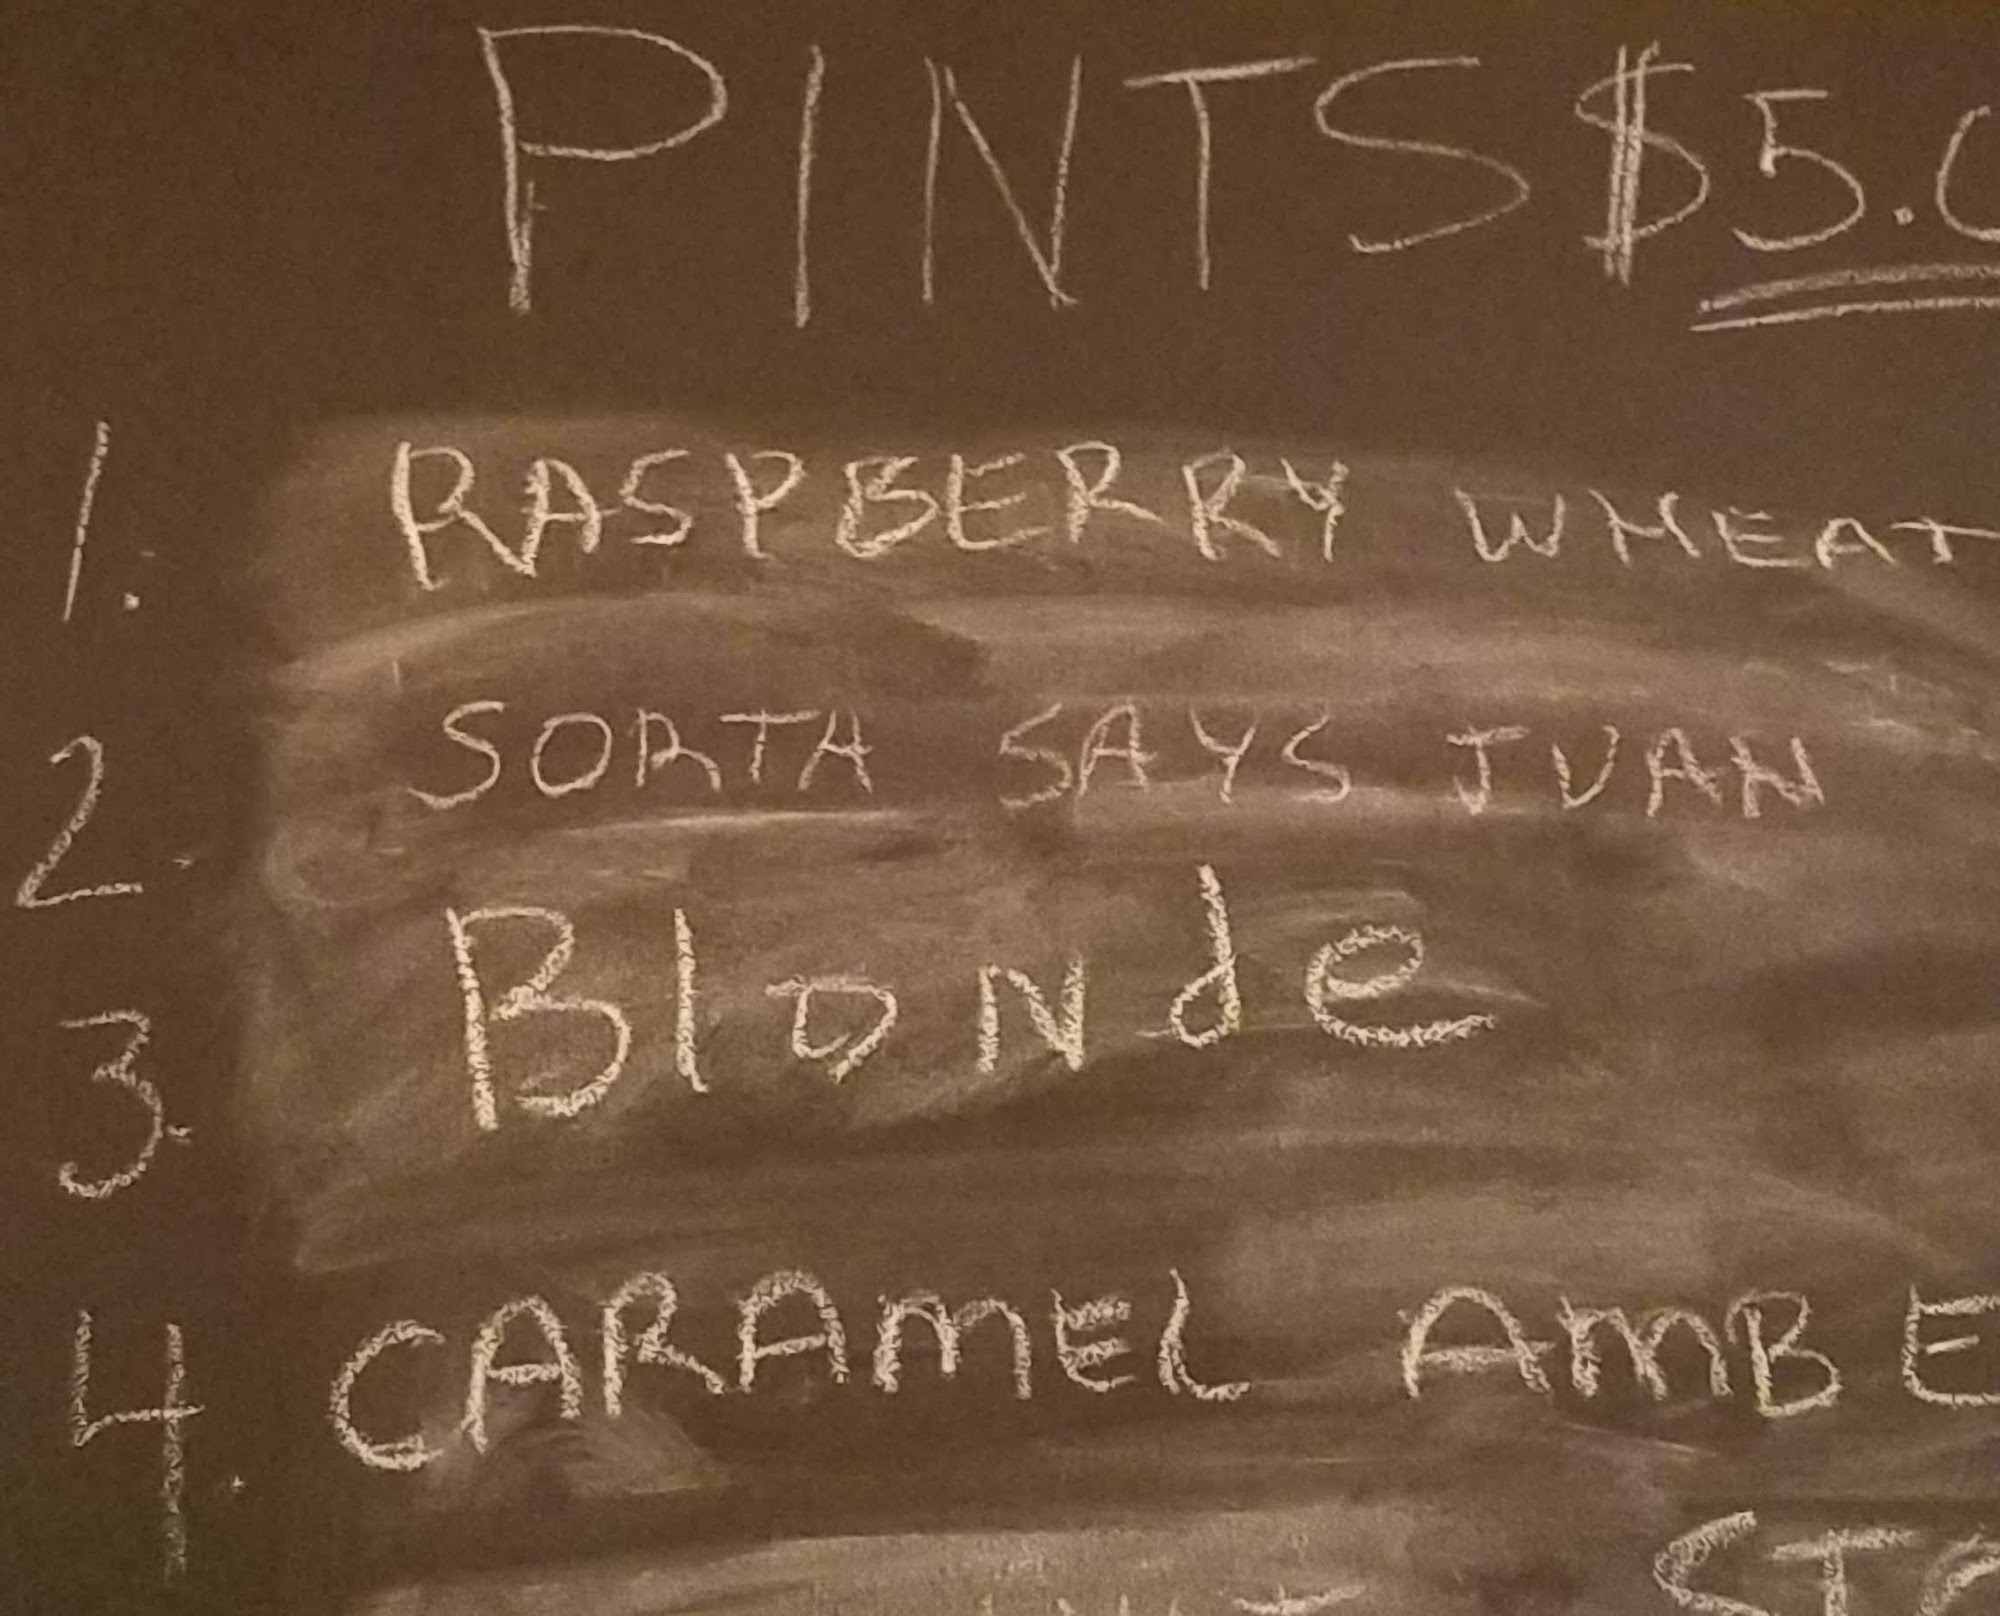 PINTS $5.0
1. RASPBERRY WHEAT
2. SORTA SAYS JUAN
3. Blonde
4. CARAMEL AMBE